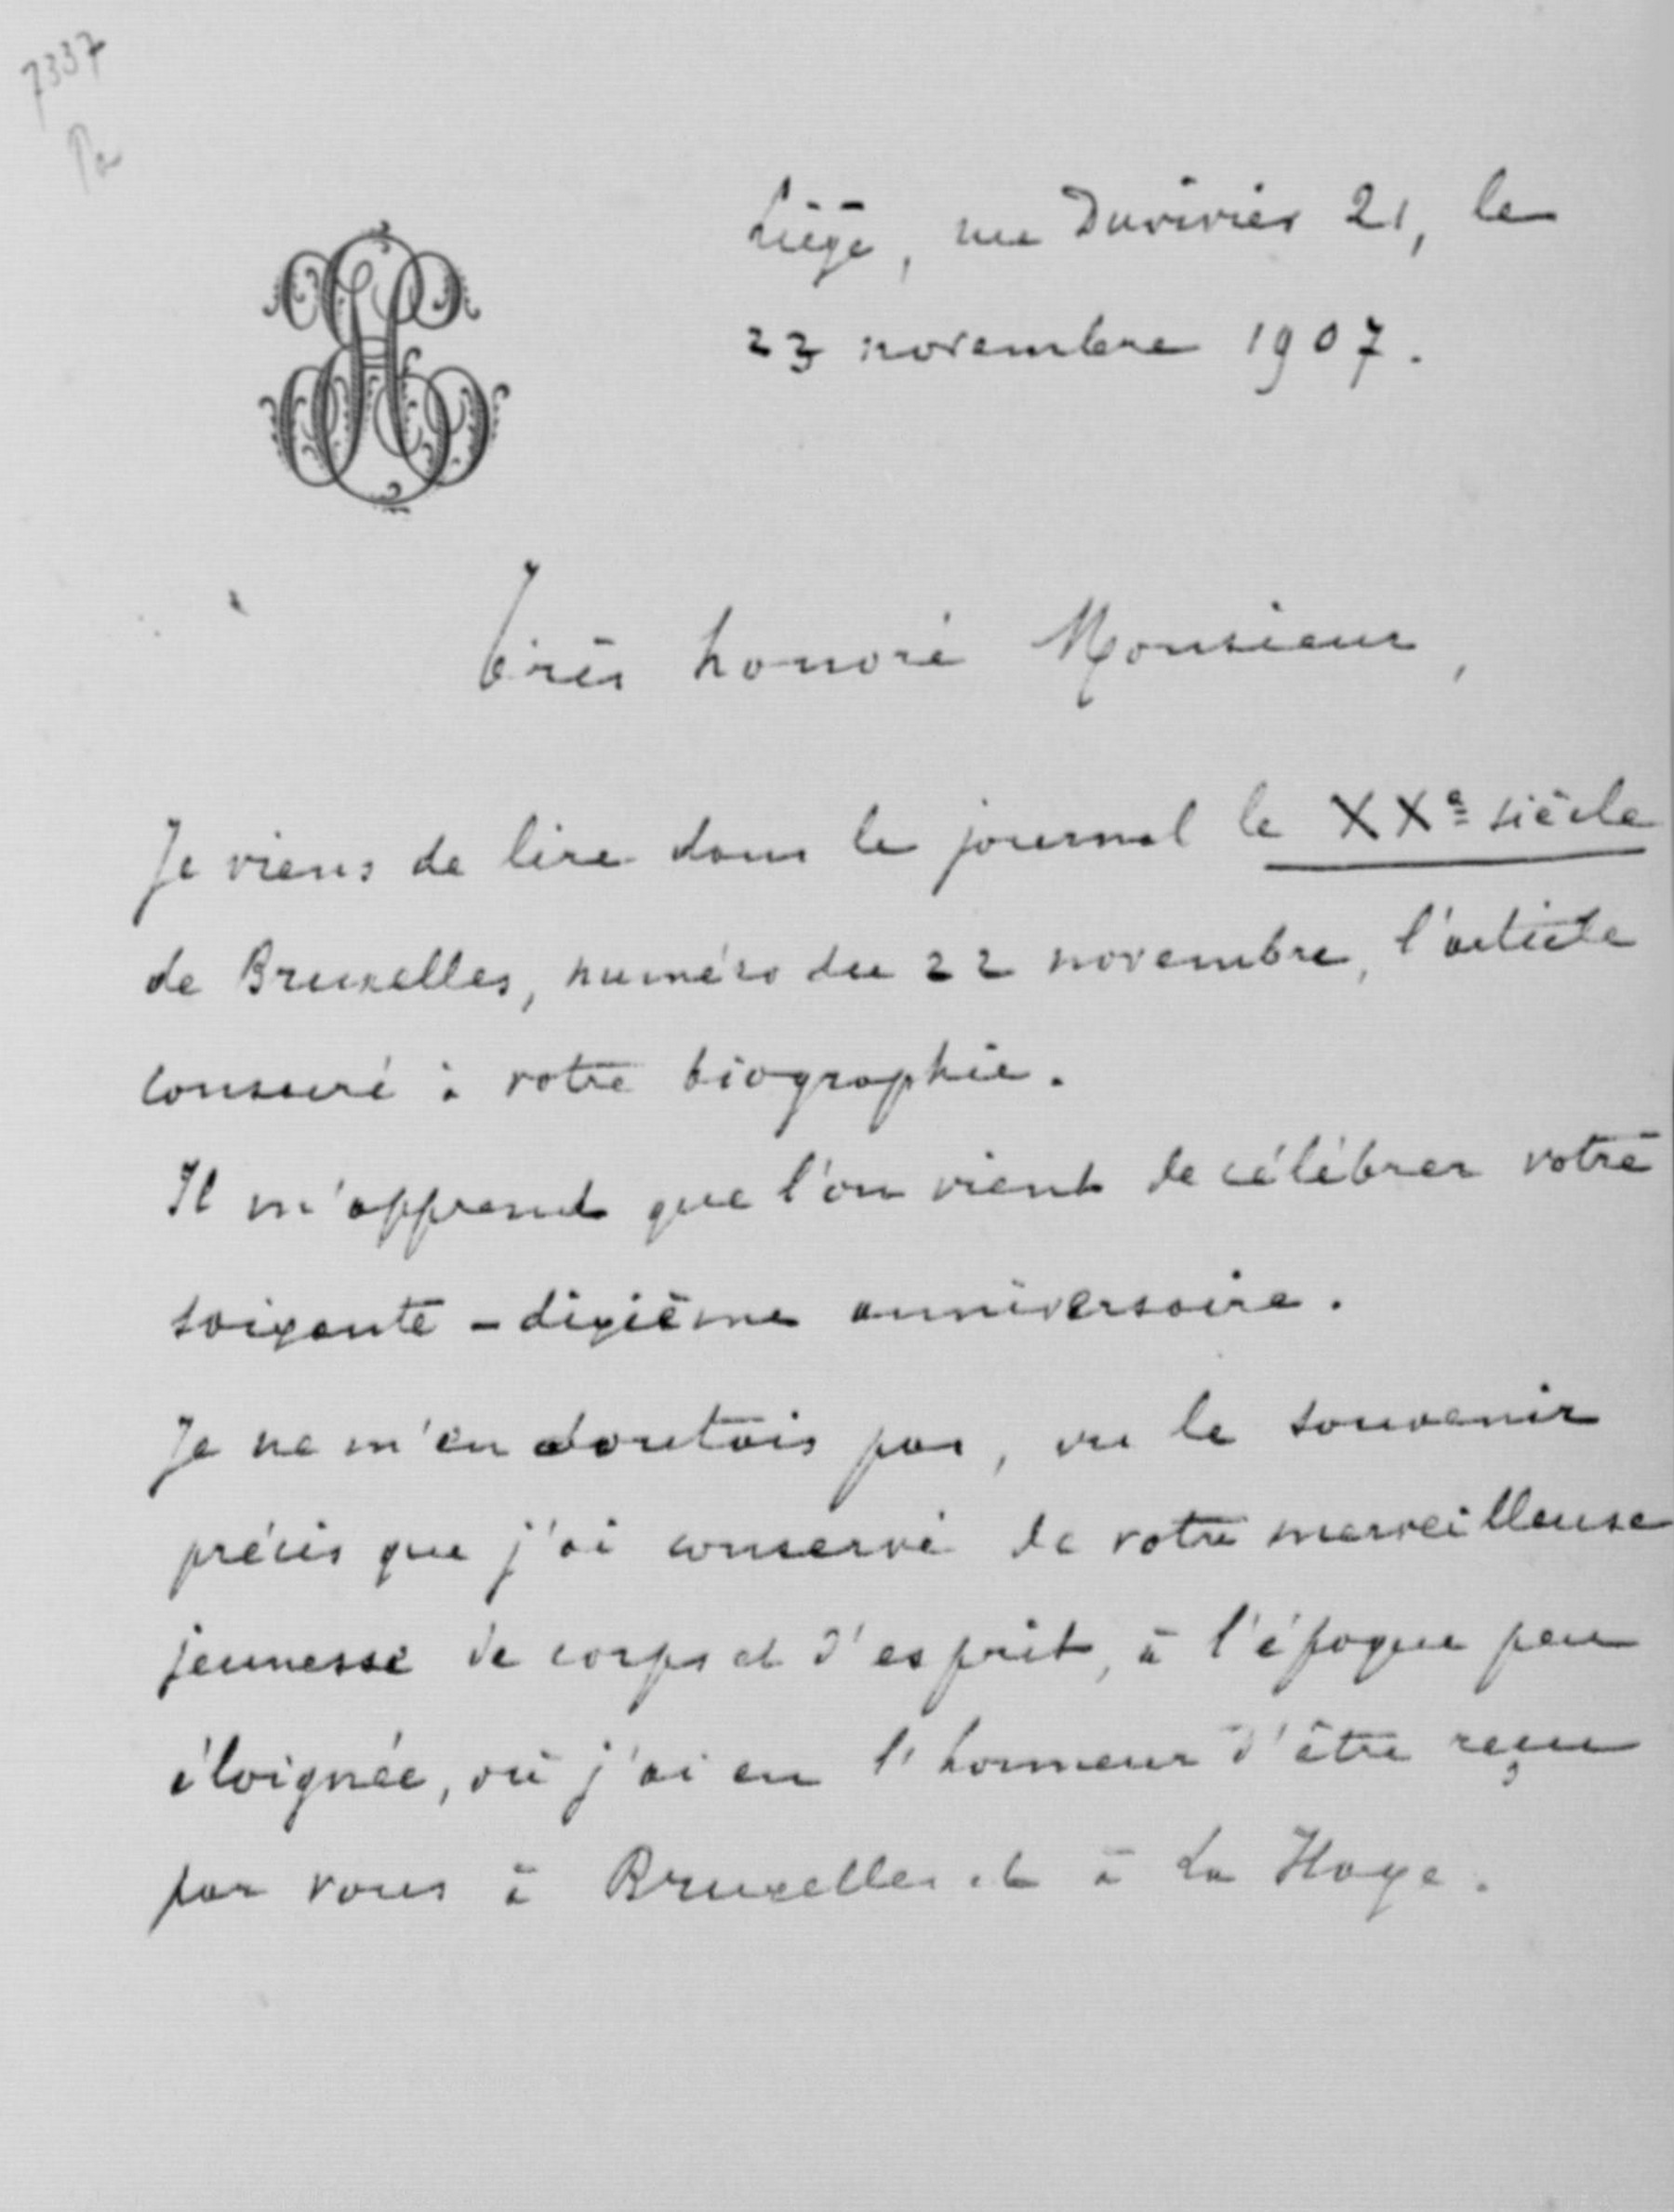 7337
Pa
Liège, rue Duvivier 21, le
23 novembre 1907.
Très honoré Monsieur,
Je viens de lire dans le journal le XXe siècle
de Bruxelles, numéro du 22 novembre, l'article
consacré à votre biographie.
Il m'apprend que l'on vient de célébrer votre
soixante-dixième anniversaire.
Je ne m'en doutais pas, vu le souvenir
précis que j'ai conservé de votre merveilleuse
jeunesse de corps et d'esprit, à l'époque peu
éloignée, où j'ai eu l'honneur d'être reçu
par vous à Bruxelles et à La Haye.